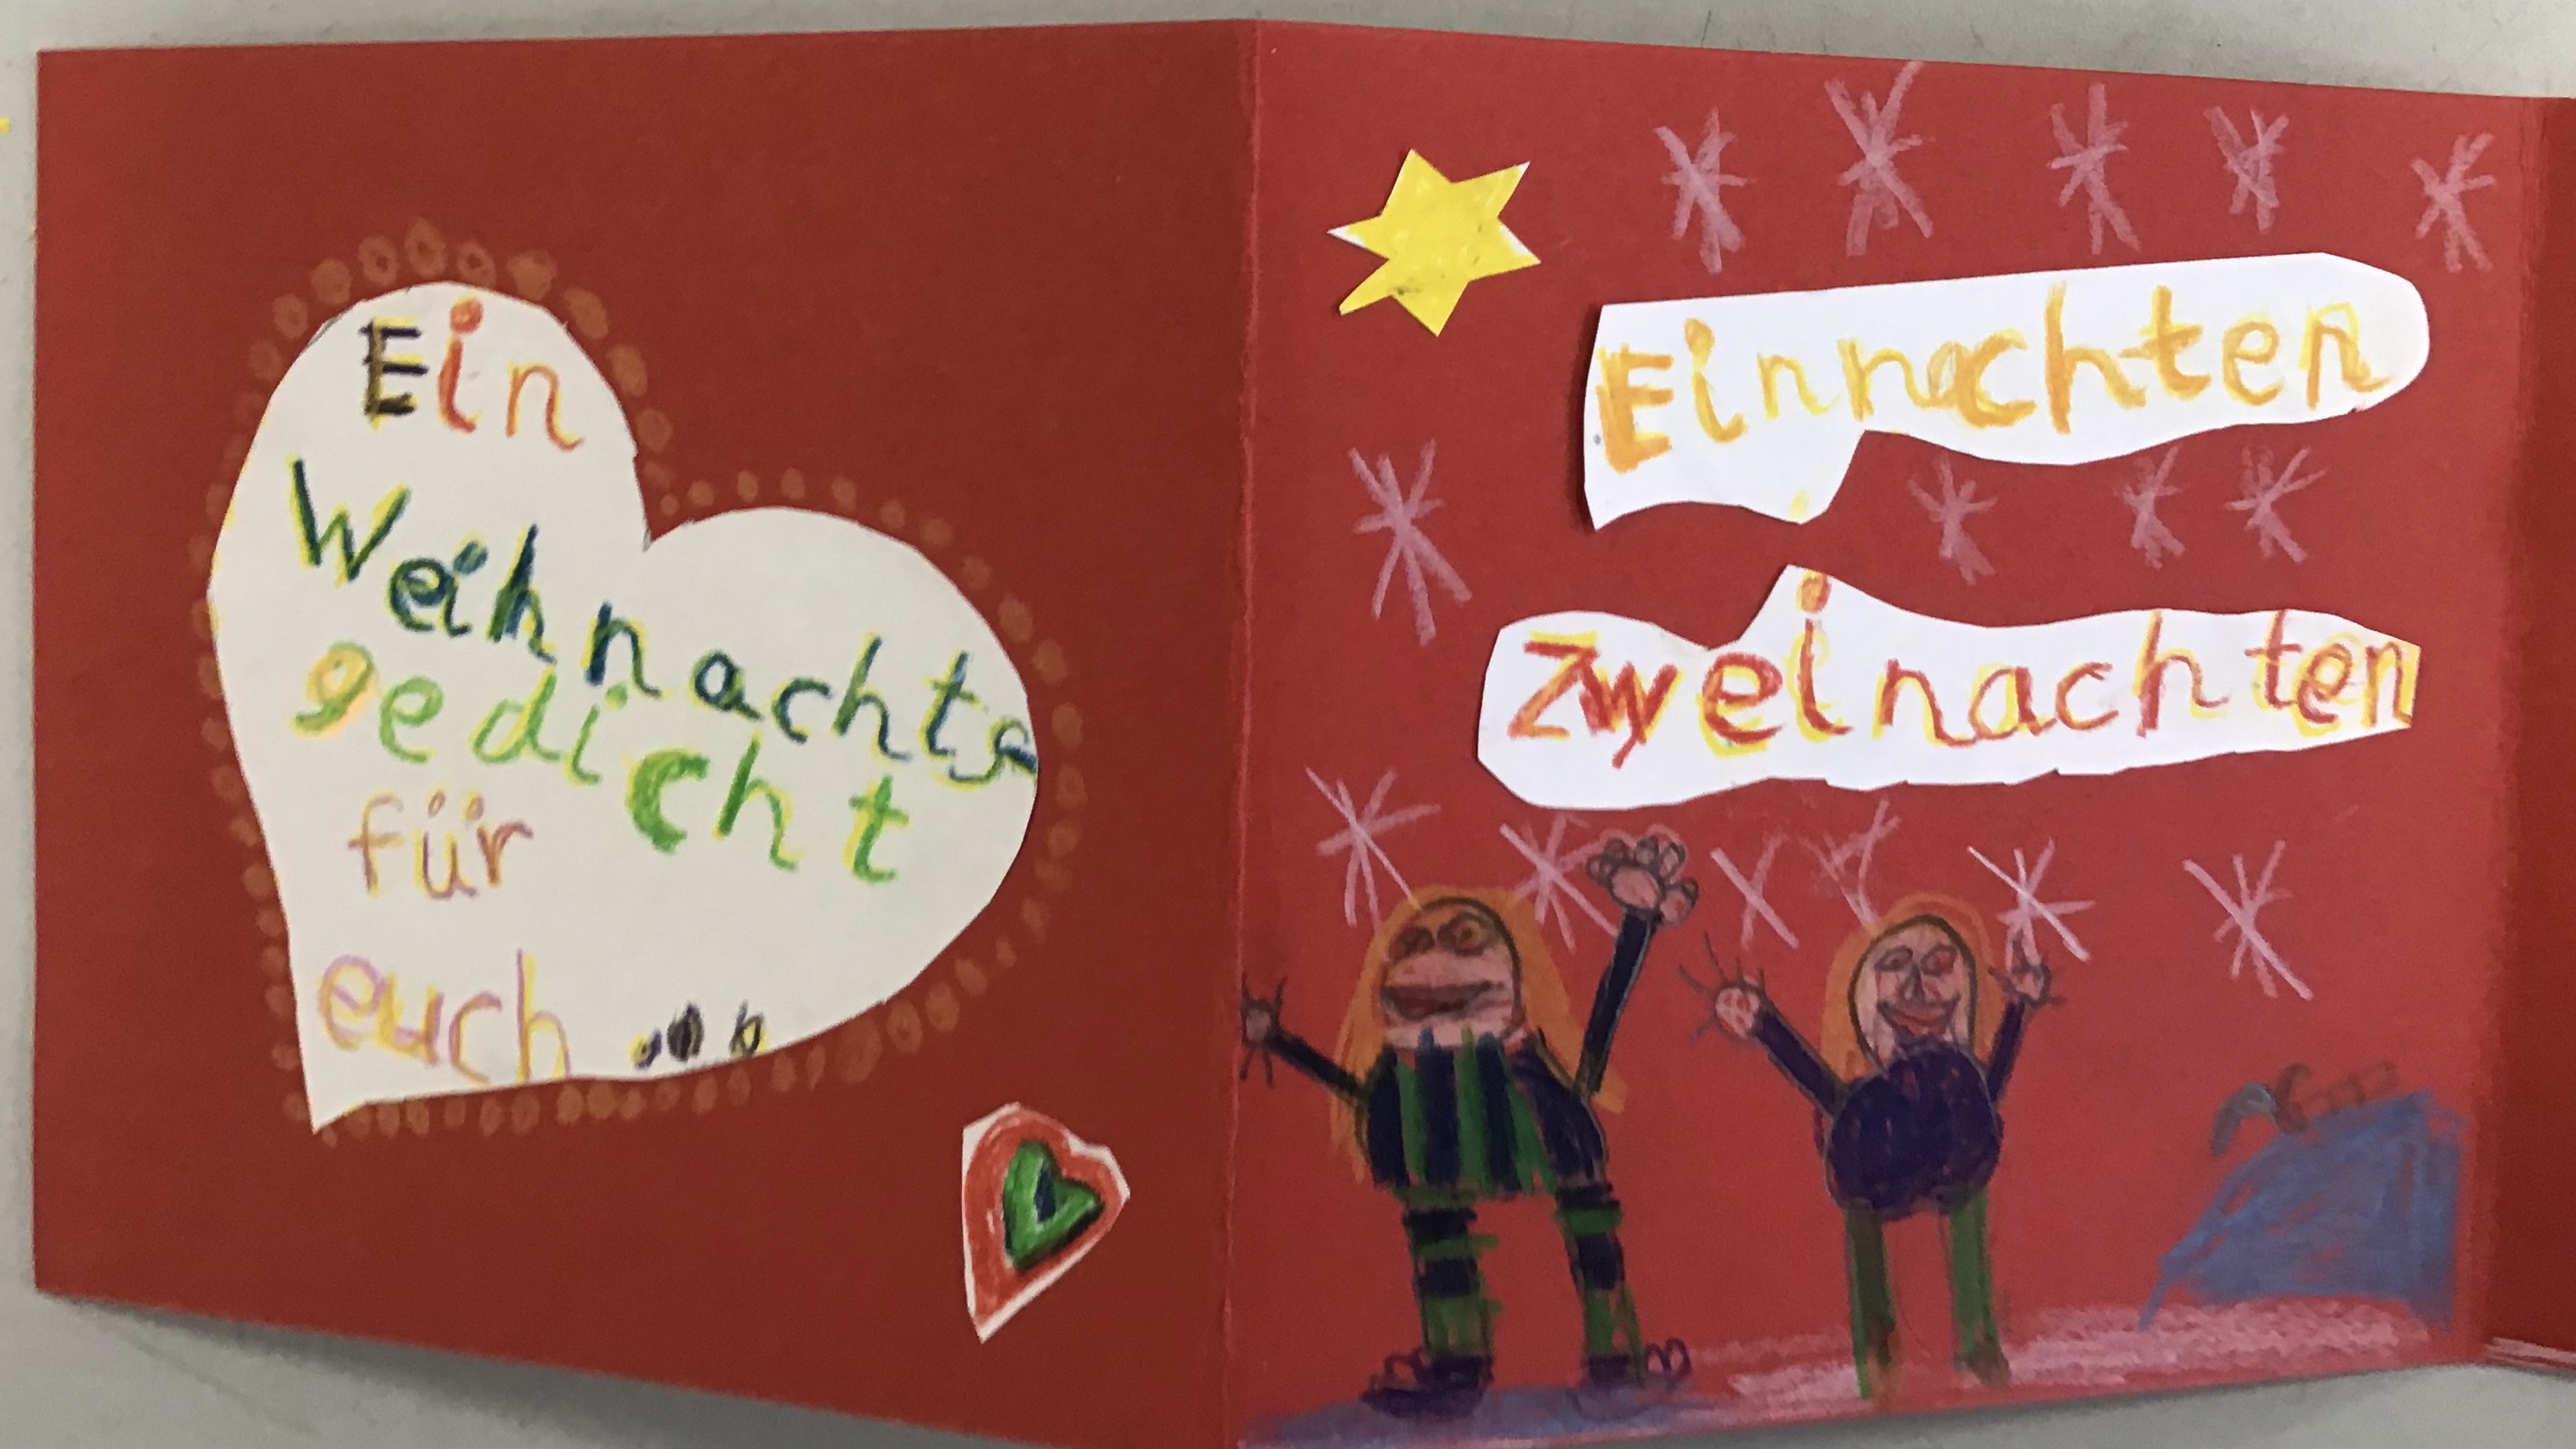 Ein
Weihnachts
gedicht
für
euch ...
Einnachten
Zweinachten